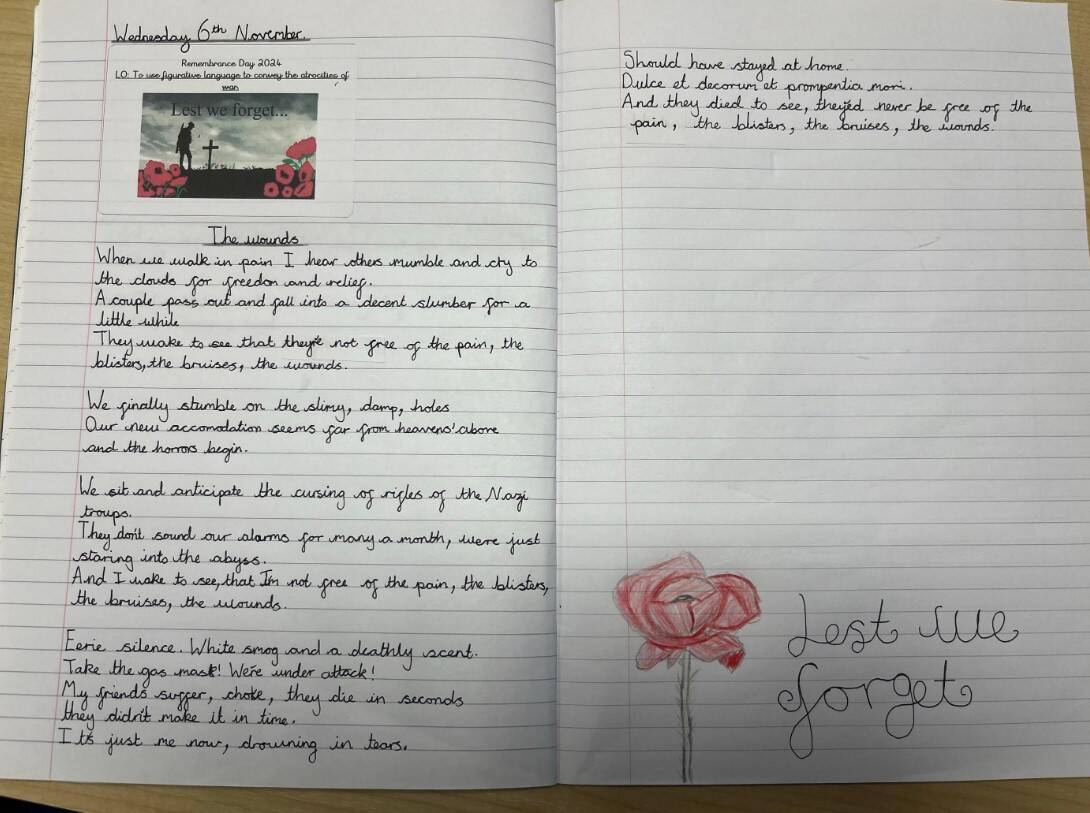 Wednesday 6th November.
Remembrance Day 2024
LO: To use figurative language to convey the atrocities of
war
Lest we forget...
The wounds
When we walk in pain I hear others mumble and cry to
the clouds for freedom and relief.
A couple pass out and fall into a decent slumber for a
little while
They wake to see that they're not free of the pain, the
blisters, the bruises, the wounds.
We finally stumble on the slimy, damp, holes
Our new accomodation seems far from heavens' above
and the horrors begin.
We sit and anticipate the cursing of rifles of the Nazi
troups.
They don't sound our alarms for many a month, we're just
staring into the abyss.
And I wake to see, that I'm not free of the pain, the blisters,
the bruises, the wounds.
Eerie silence. White smog and a deathly scent.
Take the gas mask! We're under attack!
My friends suffer, choke, they die in seconds
they didn't make it in time.
It's just me now, drowning in tears.
Should have stayed at home.
Dulce et decorum et prompentia mori.
And they died to see, they'ed never be free of the
pain, the blisters, the bruises, the wounds.
Lest we
forget